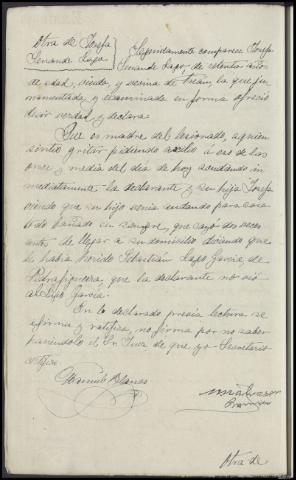 Otra de Josefa
Senande Lago
Seguidamente comparece Josefa
Senande Lago, de setenta años
de edad, viuda, y vecina de que jura-
mentada y examinada en forma ofreció
decir verdad y declara:
Que es madre del lesionado, a quien
sintió gritar pidiendo auxilio a eso de las
once y media del día de hoy acudiendo in-
mediatamente la declarante y su hija Josefa
viendo que su hijo venía andando para casa
todo bañado en sangre, que cayó dos veces
antes de llegar a su domicilio diciendo que
le había herido Sebastián Lapo García, de
Pedrafigueira, que la declarante no vió
al Lapo García.
En lo declarado previa lectura se
afirma y ratifica, no firma por no saber
haciéndolo el Sr Juez de que yo Secretario
certifico.
Manuel Blanco
Otra de